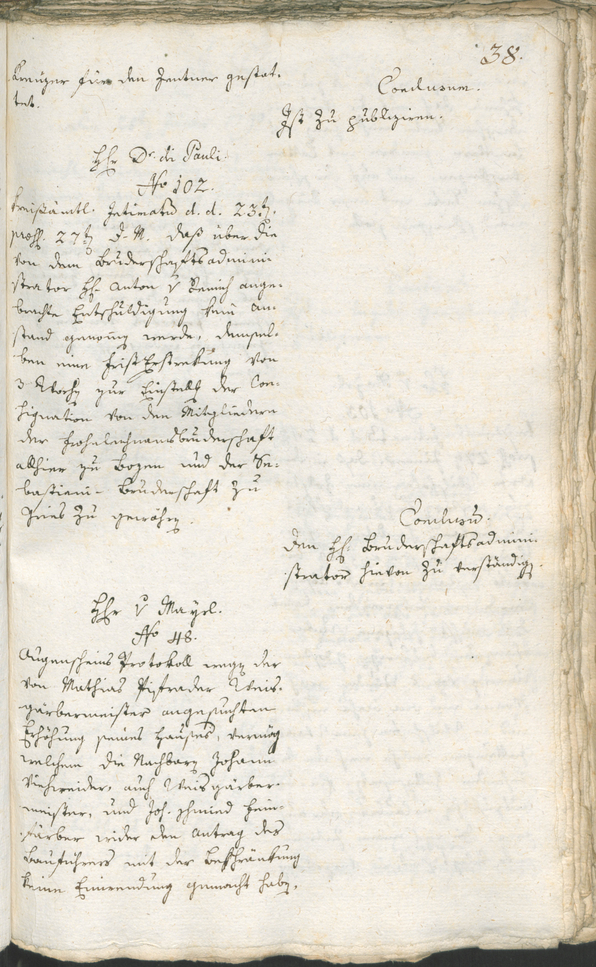 38.
Kreuzer für den Zentner gestat-
tet.
Conclusum.
Ist zu publiziren.
Hhr Dr. di Pauli.
No 102.
Kreisämtl. Intimatum d. d. 23ten
praes. 27ten d. M. daß über die
von dem Bruderschaftsadmini-
strator Hh. Anton v Remich ange-
brachte Entschuldigung kein An-
stand genommen werde, demsel-
ben eine Frist Erstrekung von
3 Wochen zur Einstellung der Con-
signation von den Mitgliedern
der Frohnleichnamsbruderschaft
allhier zu Bozen und der Se-
bastiani-Bruderschaft zu
Gries zu gewähren.
Conclusum.
Den Hh. Bruderschaftsadmini-
strator hievon zu verständigen.
Hhr v Mayrl.
No 48.
Augenscheins Protokoll wegen der
von Mathias Pisrader Weis-
gärbermeister angesuchten
Erhöhung seines Hauses, vermög
welchem die Nachbarn Johann
Viehweider, auch Weisgärber-
meister, und Joh. Schmied
färber wider den Antrag des
Bauführers mit der Beschränkung
keine Einwendung gemacht haben,